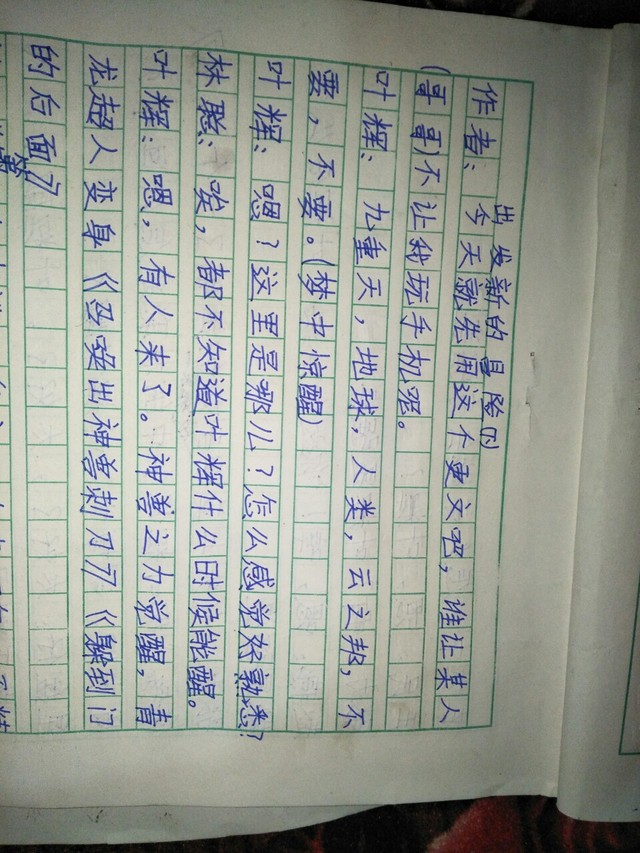 出发新的冒险(1)
作者：今天就先用这个更文吧，谁让某人
(哥哥)不让我玩手机呢。
叶辉：九重天，地球，人类，云之邦，不
要，不要。(梦中惊醒)
叶辉：嗯？这里是那儿？怎么感觉好熟悉？
林聪：唉，都不知道叶辉什么时候能醒。
叶辉：嗯，有人来了。神兽之力觉醒，青
龙超人变身《召唤出神兽刺刀》《躲到门
的后面》